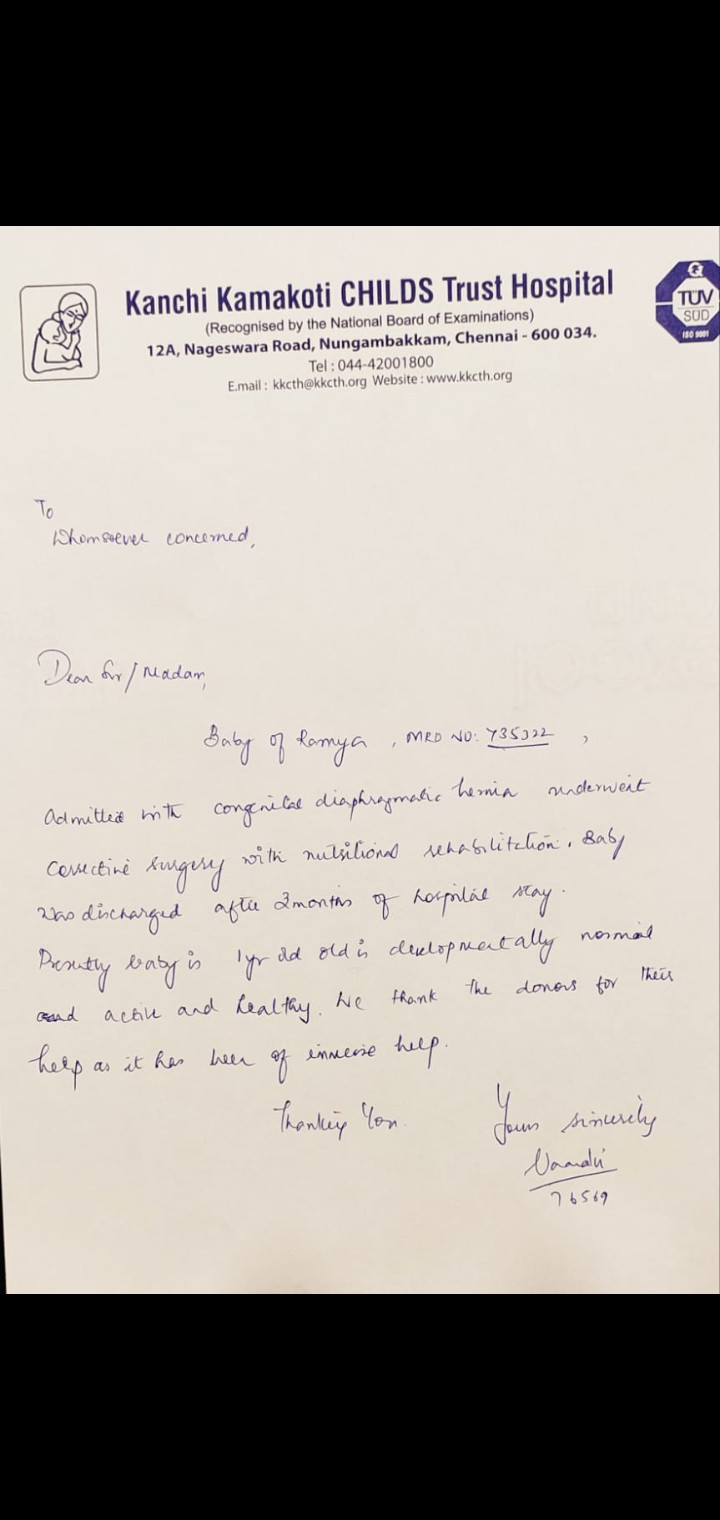 Kanchi Kamakoti CHILDS Trust Hospital
(Recognised by the National Board of Examinations)
12A, Nageswara Road, Nungambakkam, Chennai - 600 034.
Tel : 044-42001800
E.mail : kkcth@kkcth.org Website : www.kkcth.org
TÜV
SÜD
ISO 9001
To
Whomsoever concerned,
Dear Sir/Madam,
Baby of Ramya, MRD NO: 735322,
Admitted with congenital diaphragmatic hernia underwent
corrective surgery with nutritional rehabilitation. Baby
was discharged after 2months of hospital stay.
Presently baby is 1yr 2d old is developmentally normal
and active and healthy. We thank the donors for their
help as it has been of immense help.
Thanking You.
Yours sincerely
76569